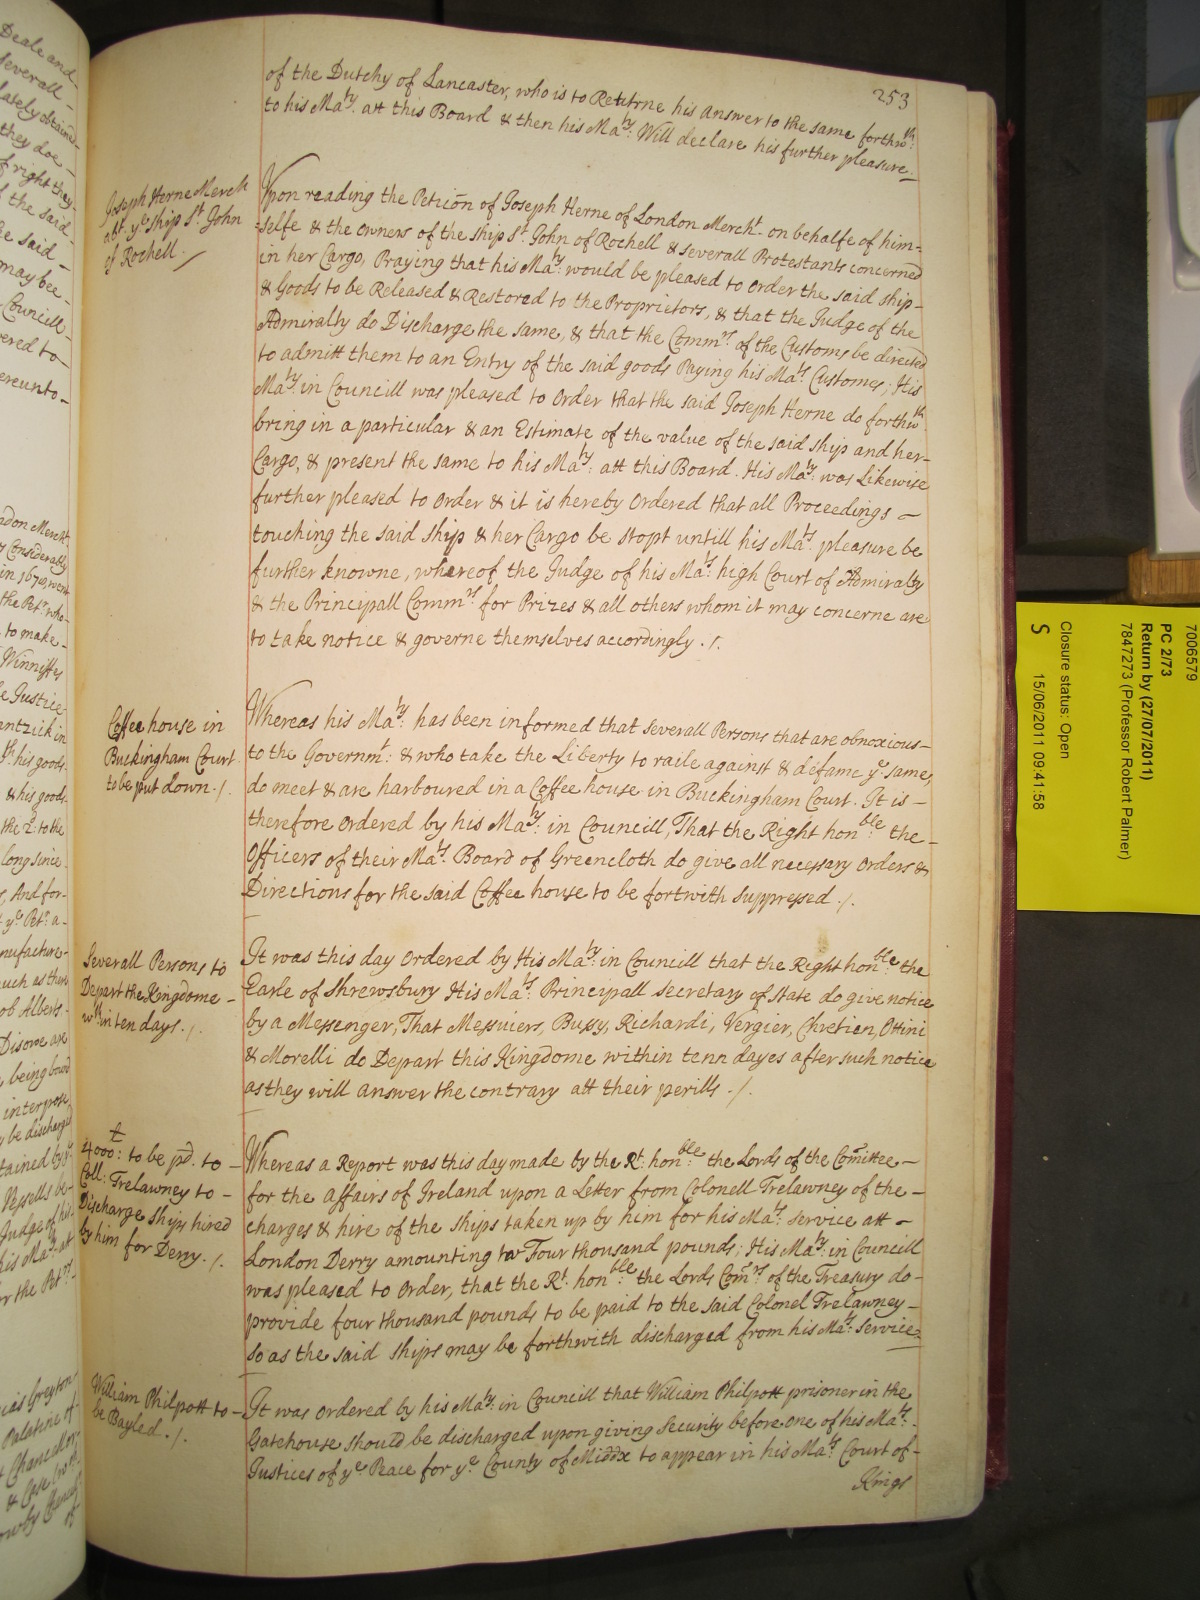 253
of the Dutchy of Lancaster, who is to Returne his answer to the same forthwth:
to his Maty: att this Board & then his Maty: Will declare his further pleasure.
Joseph Herne Merch
abt. ye ship St. John
of Rochell.
Upon reading the Peticõn of Joseph Herne of London Mercht. on behalfe of him-
selfe & the owners of the ship St. John of Rochell & severall Protestants concerned
in her Cargo, Praying that his Maty: would be pleased to order the said ship-
& Goods to be Released & Restored to the Proprietors, & that the Judge of the
Admiralty do Discharge the same, & that the Commrs. of the Customs be directed
to admitt them to an Entry of the said goods Paying his Mats. Customes; His
Maty: in Councill was pleased to order that the said Joseph Herne do forthwth.
bring in a particular & an Estimate of the value of the said ship and her-
Cargo, & present the same to his Maty: att this Board. His Maty: was Likewise
further pleased to order & it is hereby ordered that all Proceedings -
touching the said ship & her Cargo be stopt untill his Mats. pleasure be
further knowne, whereof the Judge of his Mats: high Court of Admiralty
& the Principall Commrs. for Prizes & all others whom it may concerne are
to take notice & governe themselves accordingly . /.
Coffee house in
Buckingham Court
to be put down . /.
Whereas his Maty: has been informed that severall Persons that are obnoxious-
to the Governmt: & who take the Liberty to raile against & defame ye same,
do meet & are harboured in a Coffee house in Buckingham Court. It is -
therefore ordered by his Maty: in Councill, That the Right honble: the-
Officers of their Mats. Board of Greencloth do give all necessary orders &
Directions for the said Coffee house to be fortwith suppressed . /.
Severall Persons to
Depart the Kingdome -
wthin ten days . /.
It was this day ordered by His Maty: in Councill that the Right honble: the
Earle of Shrewsbury His Mats: Principall Secretary of State do give notice
by a Messenger, That Messuiers, Bussy, Richardi, Vergier, Chretien, Ottini
& Morelli do Depart this Kingdome within tenn dayes after such notice
as they will answer the contrary att their perills . /.
4000£: to be pd. to -
Coll: Trelawney to -
Discharge ships hired
by him for Derry . /.
Whereas a Report was this day made by the Rt. honble: the Lords of the Comittee -
for the affairs of Ireland upon a Letter from Colonell Trelawney of the -
charges & hire of the ships taken up by him for his Mats. service att -
London Derry amounting to Four thousand pounds; His Maty: in Councill
was pleased to order, that the Rt. honble: the Lords Comrs. of the Treasury do-
provide four thousand pounds to be paid to the said Colonel Trelawney -
so as the said ships may be forthwith discharged from his Mats: service.
William Philpott to -
be Bayled . /.
It was ordered by his Maty: in Councill that William Philpott prisoner in the
Gatehouse should be discharged upon giving security before one of his Mats.
Justices of ye Peace for ye County of Middx to appear in his Mats Court of-
Kings
7006579
PC 2/73
Return by (27/07/2011)
7847273 (Professor Robert Palmer)
Closure status: Open
S 15/06/2011 09:41:58